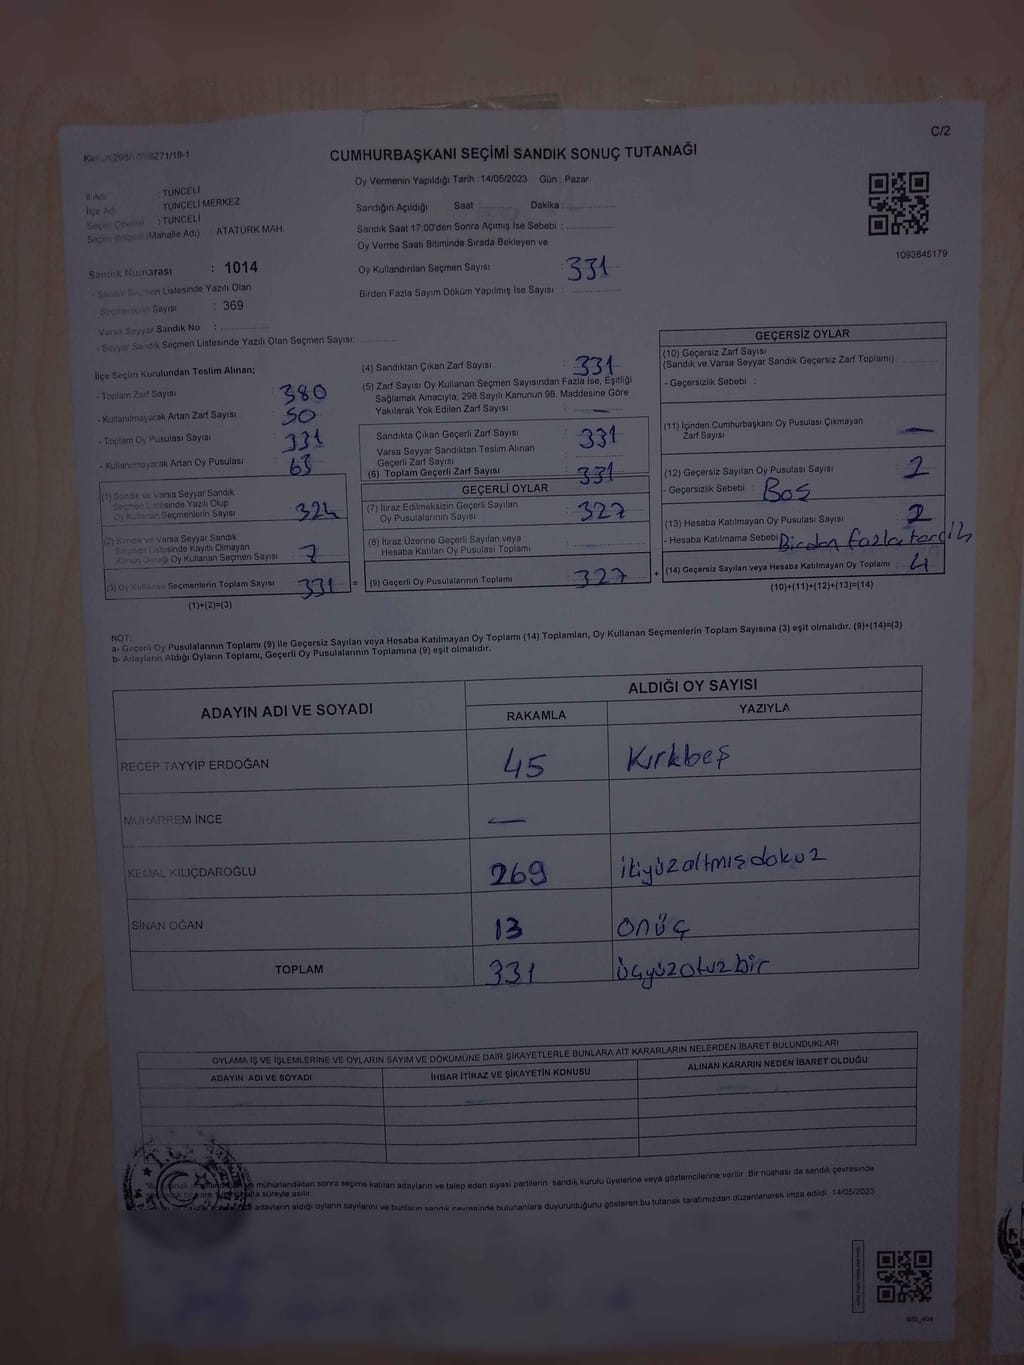 C/2
Kanun:298/1098271/16-1
CUMHURBAŞKANI SEÇİMİ SANDIK SONUÇ TUTANAĞI
Oy Vermenin Yapıldığı Tarih : 14/05/2023 Gün : Pazar
İl Adı : TUNCELİ
İlçe Adı : TUNCELİ MERKEZ
Seçim Çevresi : TUNCELİ
Seçim Bölgesi (Mahalle Adı) : ATATÜRK MAH.
Sandık Numarası : 1014
- Sandık Seçmen Listesinde Yazılı Olan
Seçmenlerin Sayısı : 369
Varsa Seyyar Sandık No :
- Seyyar Sandık Seçmen Listesinde Yazılı Olan Seçmen Sayısı:
Sandığın Açıldığı Saat : Dakika :
Sandık Saat 17:00'den Sonra Açımış İse Sebebi :
Oy Verme Saati Bitiminde Sırada Bekleyen ve
Oy Kullandırılan Seçmen Sayısı : 331
Birden Fazla Sayım Döküm Yapılmış İse Sayısı :
1093645179
İlçe Seçim Kurulundan Teslim Alınan;
- Toplam Zarf Sayısı : 380
- Kullanılmayarak Artan Zarf Sayısı : 50
- Toplam Oy Pusulası Sayısı : 331
- Kullanılmayarak Artan Oy Pusulası : 63
(1) Sandık ve Varsa Seyyar Sandık
Seçmen Listesinde Yazılı Olup
Oy Kullanan Seçmenlerin Sayısı : 324
(2) Sandık ve Varsa Seyyar Sandık
Seçmen Listesinde Kayıtlı Olmayan
Kanun Gereği Oy Kullanan Seçmen Sayısı : 7
(3) Oy Kullanan Seçmenlerin Toplam Sayısı : 331 =
(1)+(2)=(3)
(4) Sandıktan Çıkan Zarf Sayısı : 331
(5) Zarf Sayısı Oy Kullanan Seçmen Sayısından Fazla İse, Eşitliği
Sağlamak Amacıyla; 298 Sayılı Kanunun 98. Maddesine Göre
Yakılarak Yok Edilen Zarf Sayısı : —
Sandıkta Çıkan Geçerli Zarf Sayısı : 331
Varsa Seyyar Sandıktan Teslim Alınan
Geçerli Zarf Sayısı :
(6) Toplam Geçerli Zarf Sayısı : 331
GEÇERLİ OYLAR
(7) İtiraz Edilmeksizin Geçerli Sayılan
Oy Pusulalarının Sayısı : 327
(8) İtiraz Üzerine Geçerli Sayılan veya
Hesaba Katılan Oy Pusulası Toplamı :
(9) Geçerli Oy Pusulalarının Toplamı : 327 +
GEÇERSİZ OYLAR
(10) Geçersiz Zarf Sayısı
(Sandık ve Varsa Seyyar Sandık Geçersiz Zarf Toplamı)
- Geçersizlik Sebebi :
(11) İçinden Cumhurbaşkanı Oy Pusulası Çıkmayan
Zarf Sayısı : —
(12) Geçersiz Sayılan Oy Pusulası Sayısı : 2
- Geçersizlik Sebebi : Boş
(13) Hesaba Katılmayan Oy Pusulası Sayısı : 2
- Hesaba Katılmama Sebebi : Birden fazla tercih
(14) Geçersiz Sayılan veya Hesaba Katılmayan Oy Toplamı : 4
(10)+(11)+(12)+(13)=(14)
NOT:
a- Geçerli Oy Pusulalarının Toplamı (9) ile Geçersiz Sayılan veya Hesaba Katılmayan Oy Toplamı (14) Toplamları, Oy Kullanan Seçmenlerin Toplam Sayısına (3) eşit olmalıdır. (9)+(14)=(3)
b- Adayların Aldığı Oyların Toplamı, Geçerli Oy Pusulalarının Toplamına (9) eşit olmalıdır.
ADAYIN ADI VE SOYADI ALDIĞI OY SAYISI
RAKAMLA YAZIYLA
RECEP TAYYİP ERDOĞAN 45 Kırkbeş
MUHARREM İNCE —
KEMAL KILIÇDAROĞLU 269 ikiyüzaltmışdokuz
SİNAN OĞAN 13 onüç
TOPLAM 331 üçyüzotuzbir
OYLAMA İŞ VE İŞLEMLERİNE VE OYLARIN SAYIM VE DÖKÜMÜNE DAİR ŞİKAYETLERLE BUNLARA AİT KARARLARIN NELERDEN İBARET BULUNDUKLARI
ADAYIN ADI VE SOYADI İHBAR İTİRAZ VE ŞİKAYETİN KONUSU ALINAN KARARIN NEDEN İBARET OLDUĞU
mühürlendikten sonra seçime katılan adayların ve talep eden siyasi partilerin sandık kurulu üyelerine veya gözlemcilerine verilir. Bir nüshası da sandık çevresinde
süreyle asılır.
adayların aldığı oyların sayılarını ve bunların sandık çevresinde bulunanlara duyurulduğunu gösteren bu tutanak tarafımızdan düzenlenerek imza edildi. 14/05/2023